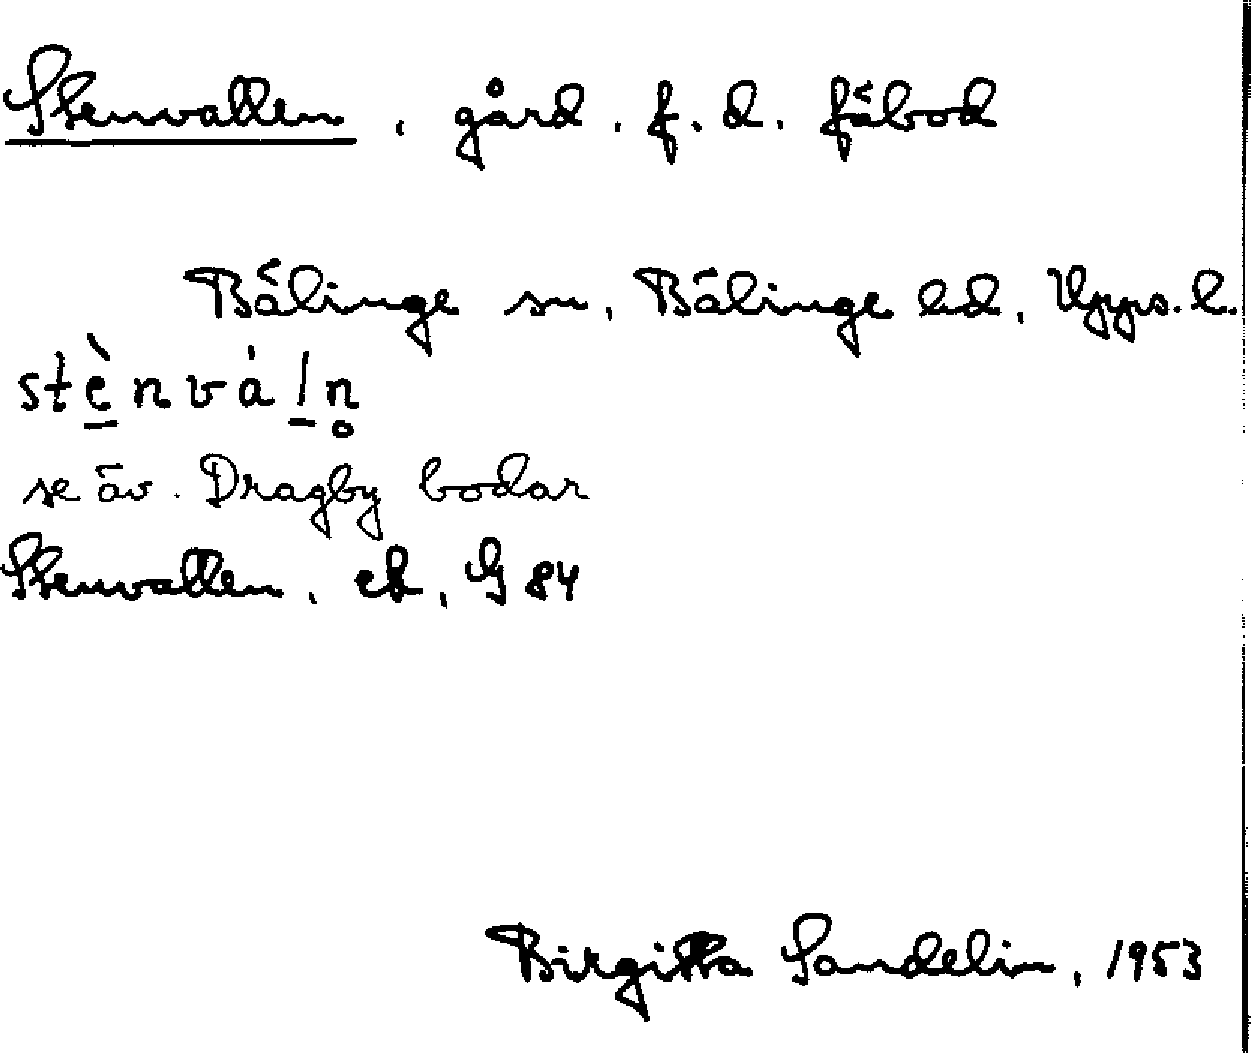 Stenvallen, gård, f.d. fäbod
Bälinge sn, Bälinge hd, Upps. l.
stè̠nvȧl̠n̥
se äv. Dragby bodar
Stenvallen, ek, G 84
Birgitta Sandelin, 1953